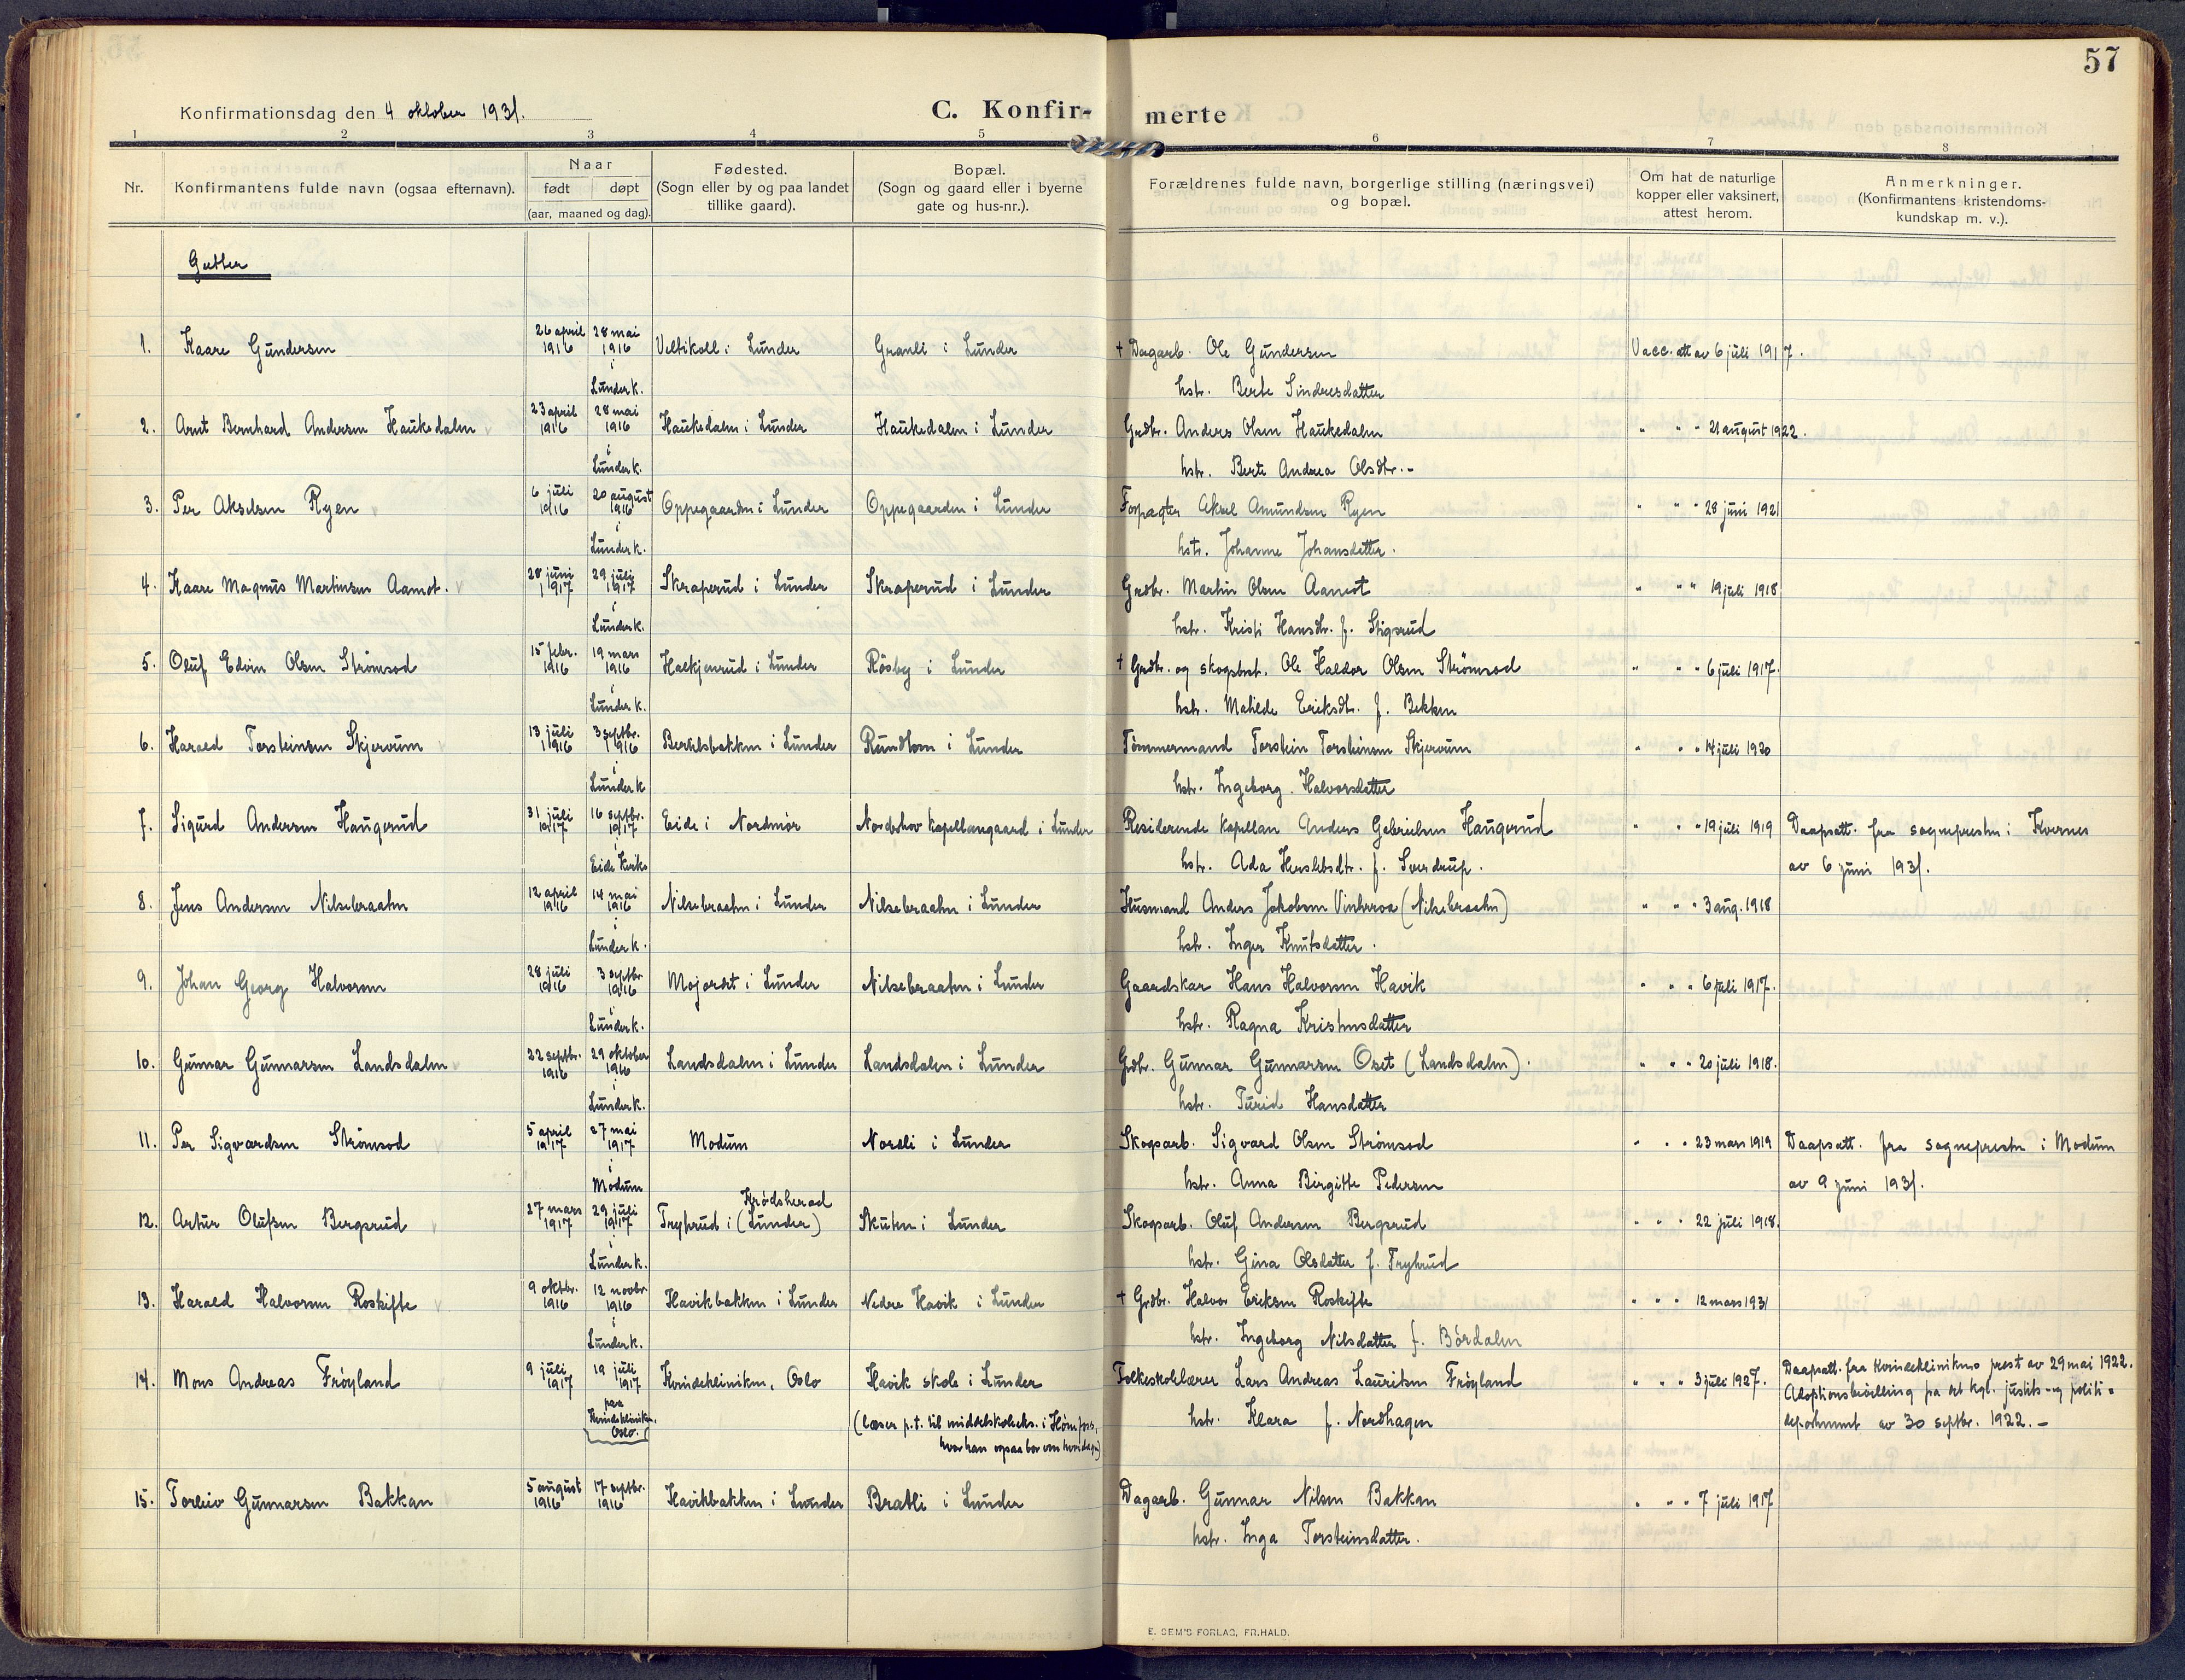 57
Konfirmationsdag den 4 oktober 1931.
C. Konfir-
merte
1 2 3 4 5 6 7 8
Nr.
Konfirmantens fulde navn (ogsaa efternavn).
Naar
født døpt
(aar, maaned og dag).
Fødested.
(Sogn eller by og paa landet
tillike gaard).
Bopæl.
(Sogn og gaard eller i byerne
gate og hus-nr.).
Forældrenes fulde navn, borgerlige stilling (næringsvei)
og bopæl.
Om hat de naturlige
kopper eller vaksinert,
attest herom.
Anmerkninger.
(Konfirmantens kristendoms-
kundskap m. v.).
Gutter
1. Kaare Gundersen 26 april 1916 28 mai 1916 i Lunder k. Veltikoll i Lunder Granli i Lunder † Dagarb. Ole Gundersen Vacc. att av 6 juli 1917.
hstr. Berte Sindresdatter
2. Arnt Bernhard Andersen Haukedalen 23 april 1916 28 mai 1916 i Lunder k. Haukedalen i Lunder Haukedalen i Lunder Grdbr. Anders Olsen Haukedalen " " " 21 august 1922.
hstr. Berte Andrea Olsdtr. -
3. Per Akselsen Ryen 6 juli 1916 20 august 1916 i Lunder k. Oppegaarden i Lunder Oppegaarden i Lunder Forpagter Aksel Amundsen Ryen " " " 28 juni 1921
hstr. Johanne Johansdatter.
4. Kaare Magnus Martinsen Aamot. 28 juni 1917 29 juli 1917 i Lunder k. Skraperud i Lunder Skraperud i Lunder Grdbr. Martin Olsen Aamot " " " 19 juli 1918
hstr. Kristi Hansdtr. f. Stigsrud
5. Oluf Edvin Olsen Strømsod 15 febr. 1916 19 mars 1916 i Lunder k. Halkjenrud i Lunder Røsby i Lunder † Grdbr. og skogsbest. Ole Haldor Olsen Strømsod " " " 6 juli 1917.
hstr. Matilde Eriksdtr. f. Bekken
6. Harald Torsteinsen Skjervum 13 juli 1916 3 septbr. 1916 i Lunder k Bertelsbakken i Lunder Rundtom i Lunder Tømmermand Torstein Torsteinsen Skjervum " " " 14 juli 1920
hstr. Ingeborg Halvorsdatter
7. Sigurd Andersen Haugerud 31 juli 1917 16 septbr. 1917 i Eide kirke Eide i Nordmør Norderhov kapellangaard i Lunder Residerende kapellan Anders Gabrielsen Haugerud " " " 19 juli 1919 Daapsatt. fra sognepresten i Kvernes
hstr. Ada Herslebsdtr. f. Sverdrup. av 6 juni 1931.
8. Jens Andersen Nilsebraaten 12 april 1916 14 mai 1916 i Lunder k. Nilsebraaten i Lunder Nilsebraaten i Lunder Husmand Anders Jakobsen Vinterroa (Nilsebraaten) " " " 3 aug. 1918
hstr. Inger Knutsdatter.
9. Johan Georg Halvorsen 28 juli 1916 3 septbr. 1916 i Lunder k. Mojordet i Lunder Nilsebraaten i Lunder Gaardskar Hans Halvorsen Havik " " " 6 juli 1917.
hstr. Ragna Kristensdatter
10. Gunnar Gunnarsen Landsdalen 22 septbr. 1916 29 oktober 1916 i Lunder k. Landsdalen i Lunder Landsdalen i Lunder Grdbr. Gunnar Gunnarsen Oset (Landsdalen). " " " 20 juli 1918.
hstr. Turid Hansdatter
11. Per Sigvardsen Strømsod 5 april 1917 27 mai 1917 i Modum Modum Nordli i Lunder Skogsarb. Sigvard Olsen Strømsod " " " 23 mars 1919 Daapsatt. fra sognepresten i Modum
hstr. Anna Birgitte Pedersen av 9 juni 1931.
12. Artur Olufsen Bergsrud 27 mars 1917 29 juli 1917 i Lunder k. Trytrud i Krødsherad (Lunder) Skuten i Lunder Skogsarb. Oluf Andersen Bergsrud " " " 22 juli 1918.
hstr. Gina Olsdatter f. Trytrud
13. Harald Halvorsen Roskifte 9 oktbr. 1916 12 novbr 1916 i Lunder k. Havikbakken i Lunder Nedre Havik i Lunder † Grdbr. Halvor Eriksen Roskifte " " " 12 mars 1931
hstr. Ingeborg Nilsdatter f. Børdalen
14. Mons Andreas Frøyland 9 juli 1917 19 juli 1917 paa Kvindekliniken, Oslo. Kvindekliniken, Oslo Havik skole i Lunder Folkeskolelærer Lars Andreas Lauritsen Frøyland " " " 3 juli 1927. Daapsatt. fra Kvindeklinikens prest av 29 mai 1922.
(læser p.t. til middelskoleeks. i Hønefoss, hvor han ogsaa bor om hverdagen) hstr. Klara f. Nordhagen Adoptionsbevilling fra det kgl. justits- og politi-
departement av 30 septbr. 1922. -
15. Torleiv Gunnarsen Bakkan 5 august 1916 17 septbr. 1916 Havikbakken i Lunder Bratli i Lunder Dagarb. Gunnar Nilsen Bakkan " " " 7 juli 1917
hstr. Inga Torsteinsdatter.
E. SEM'S FORLAG, FR.HALD.